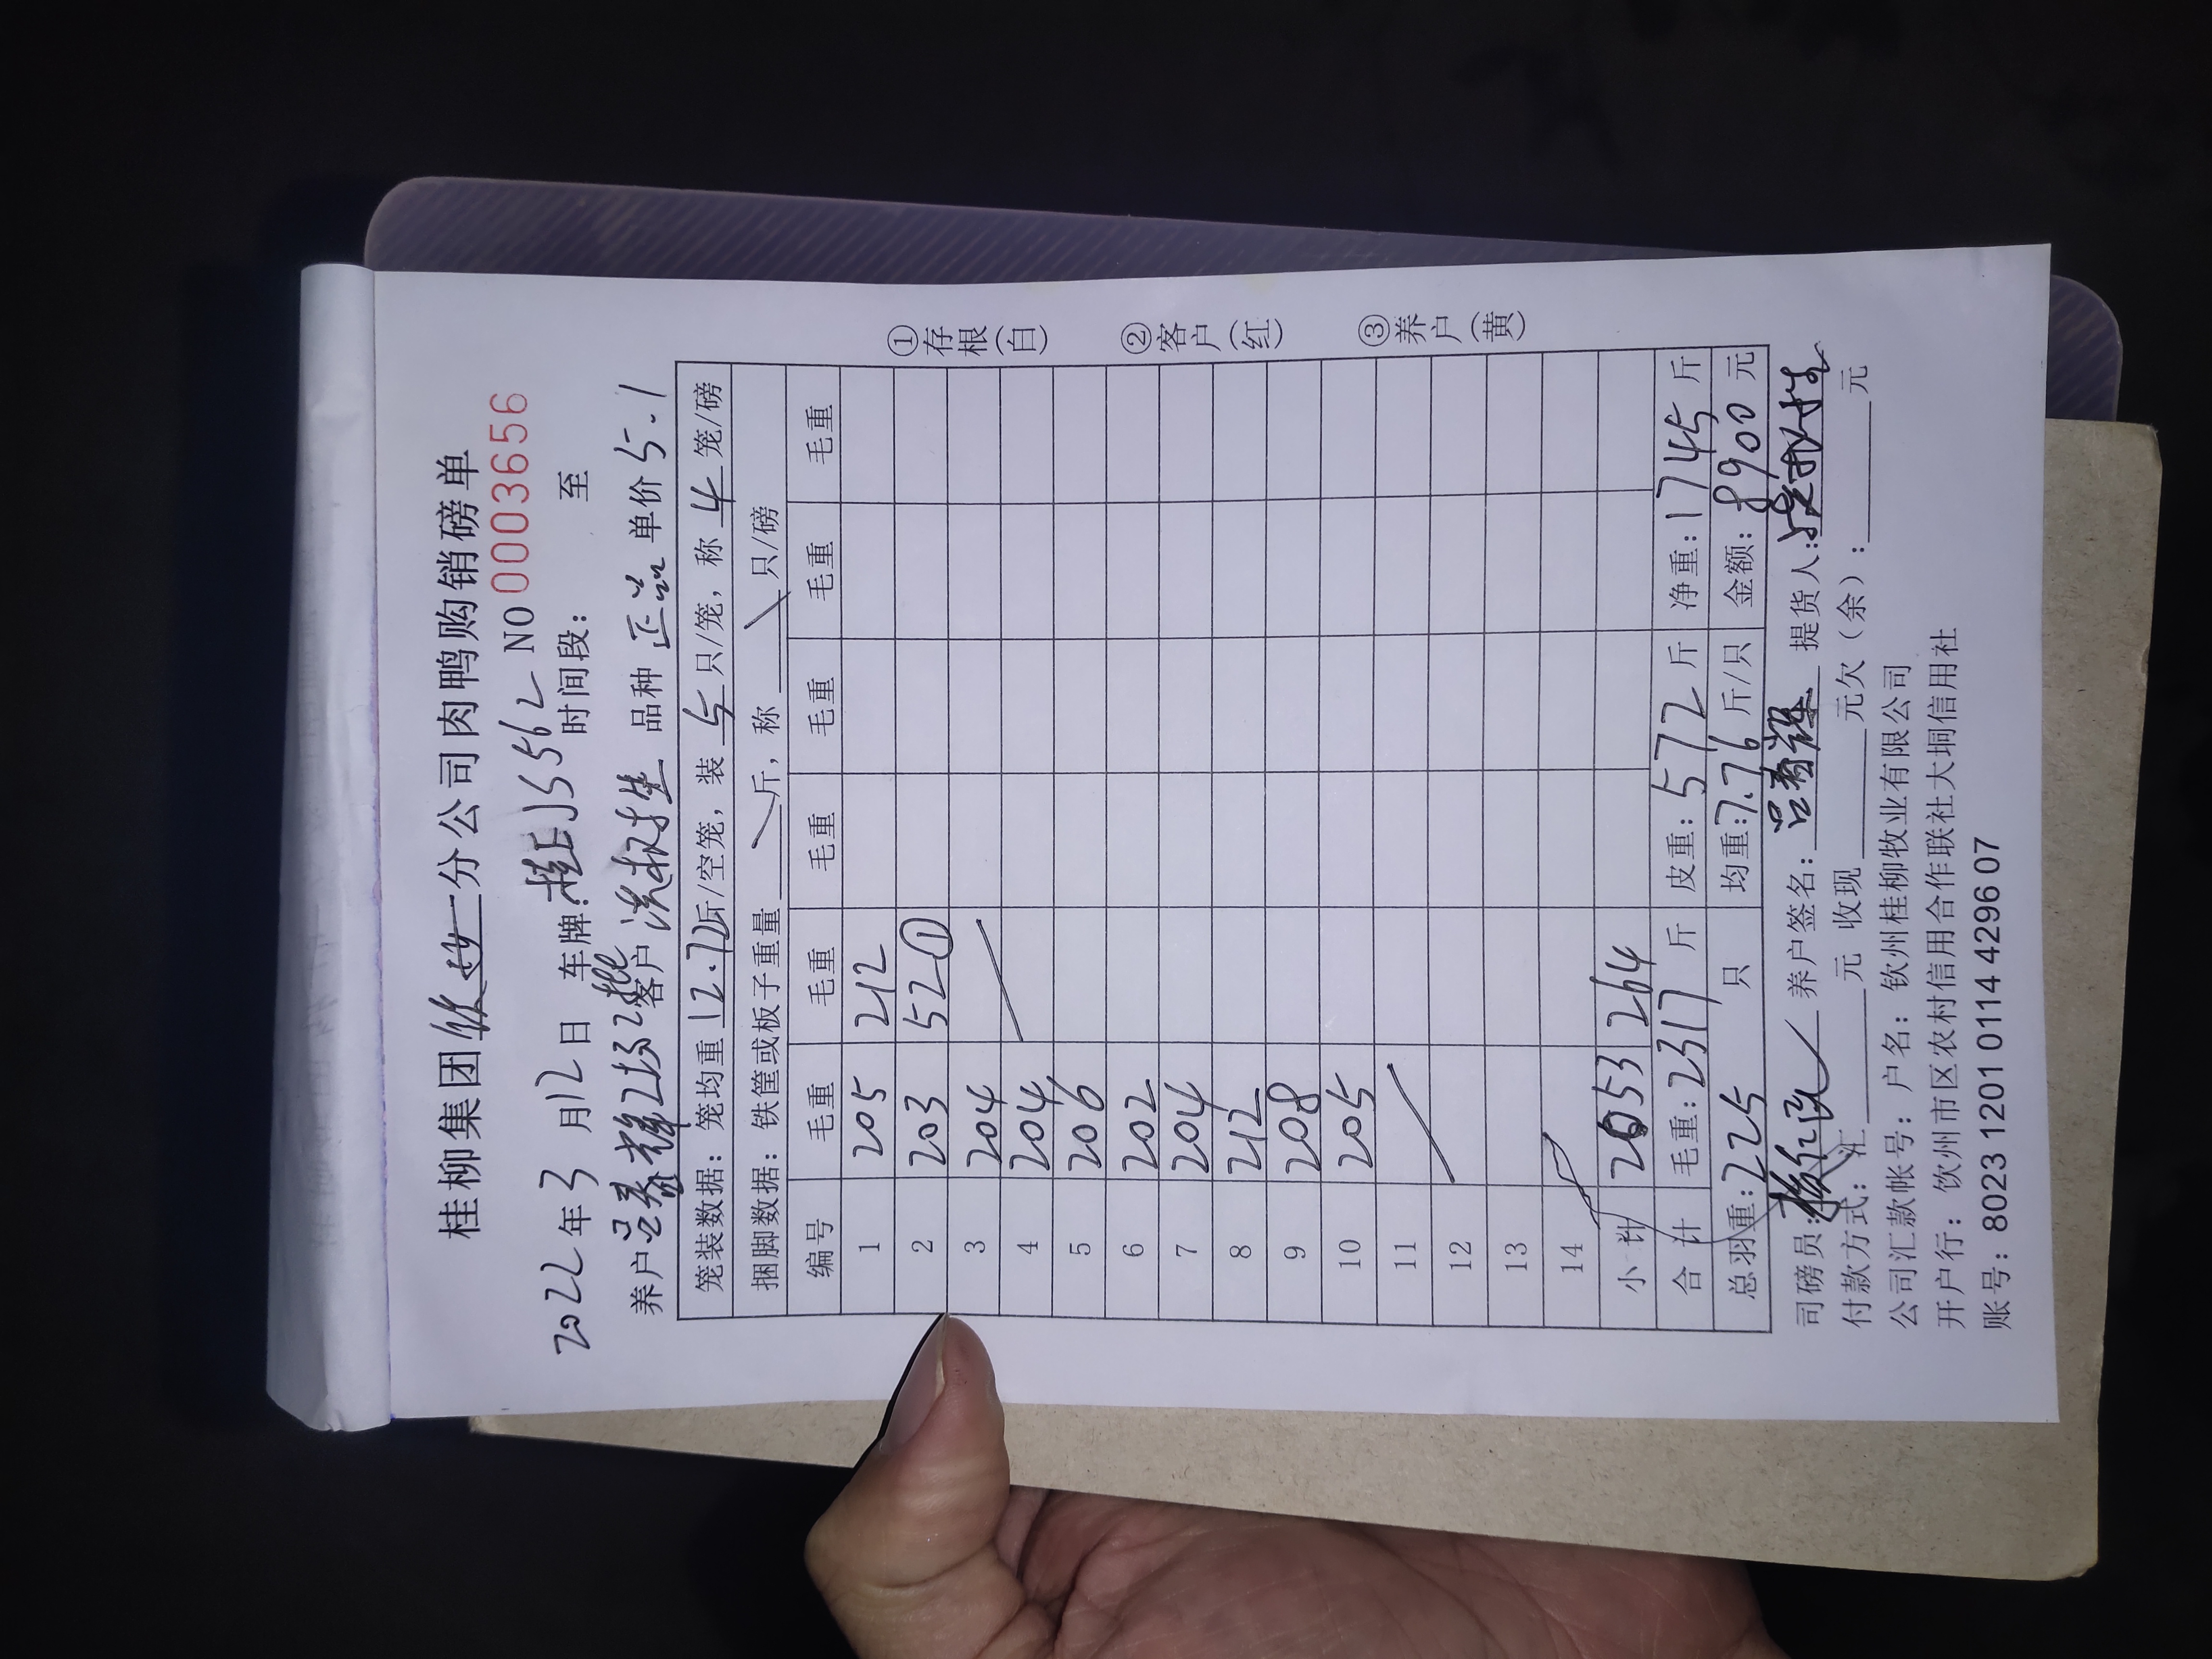 桂柳集团 分公司肉鸭购销磅单
2022年3月12日 车牌: 5562 NO 0003656
时间段: 至
养户 吕春辉2场2批 客户 洪树生 品种 正品 单价 5.1
笼装数据: 笼均重 12.72斤/空笼, 装 5 只/笼, 称 4 笼/磅
捆脚数据: 铁筐或板子重量 / 斤, 称 / 只/磅
编号 毛重 毛重 毛重 毛重 毛重 毛重
1 205 212
2 203 52①
3 204 /
4 204
5 206
6 202
7 204
8 212
9 208
10 205
11 /
12
13
14
小计 2053 264
合计 毛重: 2317 斤 皮重: 572 斤 净重: 1745 斤
总羽重: 225 只 均重: 7.76 斤/只 金额: 8900 元
司磅员: 养户签名: 吕春辉 提货人: 洪树生
付款方式: 汇 元 收现 元欠(余): 元
公司汇款帐号: 户名: 钦州桂柳牧业有限公司
开户行: 钦州市区农村信用合作联社大垌信用社
账号: 8023 1201 0114 4296 07
①存根(白)
②客户(红)
③养户(黄)